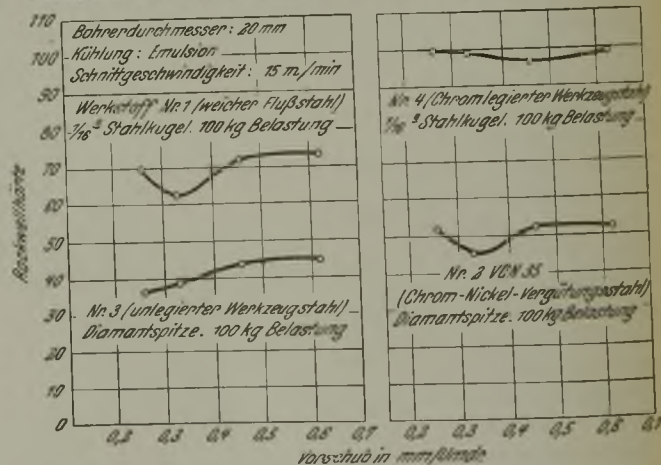 110
100
90
80
70
60
50
40
30
20
10
0
Rockwellhärte
Bohrerdurchmesser: 20 mm
Kühlung: Emulsion
Schnittgeschwindigkeit: 15 m/min
Werkstoff Nr. 1 (weicher Flußstahl)
1/16" Stahlkugel. 100 kg Belastung
Nr. 3 (unlegierter Werkzeugstahl)
Diamantspitze. 100 kg Belastung
Nr. 4 (Chromlegierter Werkzeugstahl)
1/16" Stahlkugel. 100 kg Belastung
Nr. 2 VCN 35
(Chrom-Nickel-Vergütungsstahl)
Diamantspitze. 100 kg Belastung
0,2 0,3 0,4 0,5 0,6 0,7 0,2 0,3 0,4 0,5 0,6
Vorschub in mm/Umdr.